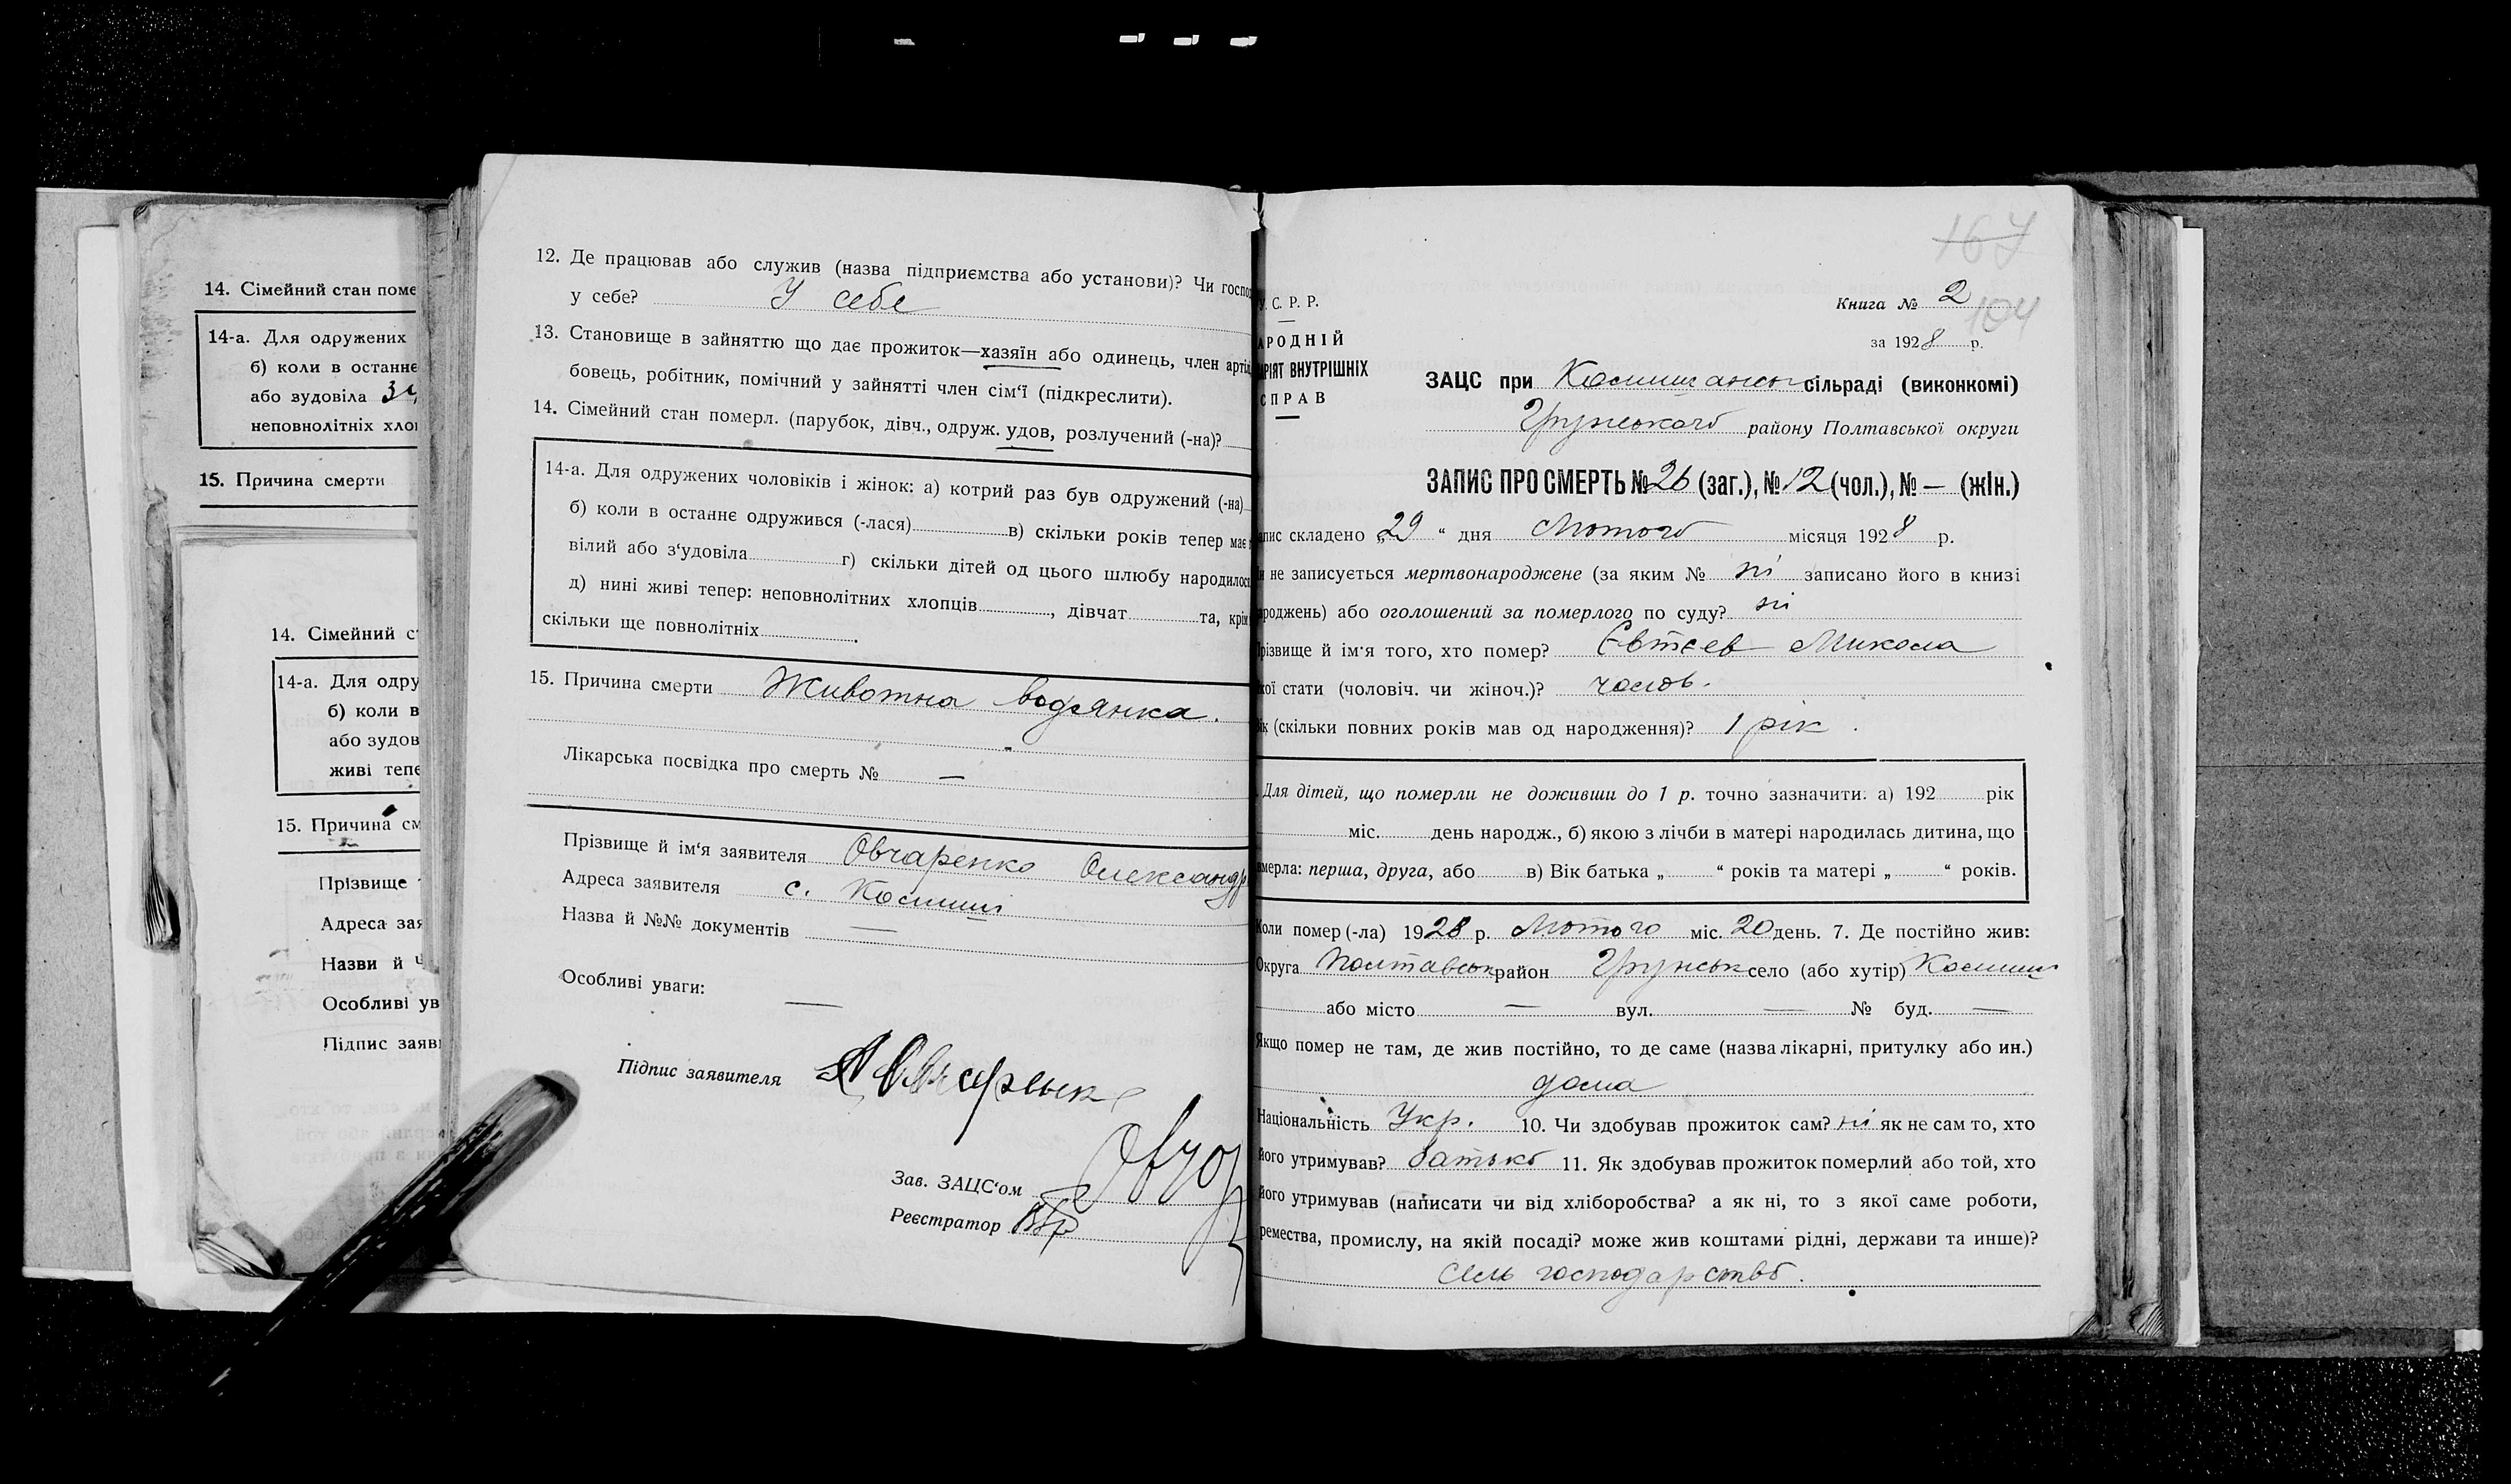 14. Сімейний стан поме
14-а. Для одружених
б) коли в останнє
або зудовіла
неповнолітніх хло
15. Причина смерти
14. Сімейний с
14-а. Для одру
б) коли в
або зудов
живі тепе
15. Причина см
Прізвище
Адреса зая
Назви й
Особливі ув
Підпис заяв
12. Де працював або служив (назва підприємства або установи)? Чи госпо
у себе? У себе
13. Становище в зайняттю що дає прожиток—хазяїн або одинець, член арті
бовець, робітник, помічний у зайнятті член сім'ї (підкреслити).
14. Сімейний стан померл. (парубок, дівч., одруж. удов, розлучений (-на)?
14-а. Для одружених чоловіків і жінок: а) котрий раз був одружений (-на)
б) коли в останнє одружився (-лася) в) скільки років тепер має
вілий або з'удовіла г) скільки дітей од цього шлюбу народилося
д) нині живі тепер: неповнолітних хлопців, дівчат та, крім
скільки ще повнолітніх.
15. Причина смерти Животна водянка.
Лікарська посвідка про смерть № —
Прізвище й ім'я заявителя Овчаренко Олександр
Адреса заявителя с. Комиші
Назва й №№ документів —
Особливі уваги: —
Підпис заявителя
Зав. ЗАЦС'ом
Реєстратор
167
У. С. Р. Р.
Книга № 2
104
АРОДНІЙ
за 1928 р.
РІЯТ ВНУТРІШНІХ
СПРАВ
ЗАЦС при сільраді (виконкомі)
Грунського району Полтавської округи
ЗАПИС ПРО СМЕРТЬ № 26 (заг.), № 12 (чол.), № — (жін.)
апис складено „29“ дня Лютого місяця 1928 р.
и не записується мертвонароджене (за яким № ні записано його в книзі
ароджень) або оголошений за померлого по суду? ні
різвище й ім'я того, хто помер? Євтєев Микола
кої стати (чоловіч. чи жіноч.)? чолов.
ік (скільки повних років мав од народження)? 1 рік.
Для дітей, що померли не доживши до 1 р. точно зазначити: а) 192 рік
міс. день народж., б) якою з лічби в матері народилась дитина, що
мерла: перша, друга, або в) Вік батька „ “ років та матері „ “ років.
Коли помер (-ла) 1928 р. Лютого міс. 20 день. 7. Де постійно жив:
Округа Полтавськ район Грунськ село (або хутір) Комиші
або місто — вул. — № буд. —
Якщо помер не там, де жив постійно, то де саме (назва лікарні, притулку або ин.)
дома
Національність Укр. 10. Чи здобував прожиток сам? ні як не сам то, хто
його утримував? батько 11. Як здобував прожиток померлий або той, хто
його утримував (написати чи від хліборобства? а як ні, то з якої саме роботи,
ремества, промислу, на якій посаді? може жив коштами рідні, держави та инше)?
Сель господарство.